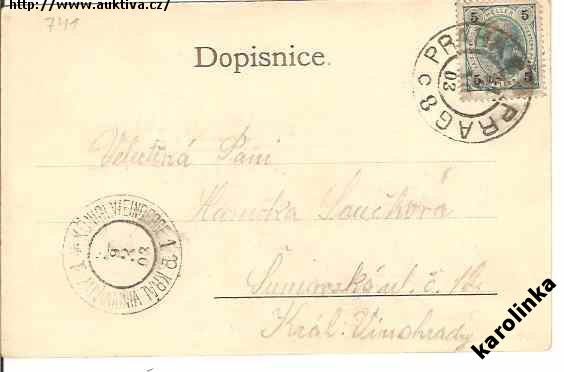 http://www.auktiva.cz/
741
Dopisnice.
5 5
5 5
PRAHA
PRAG 8 c
03
Velectěná Paní
Součková
ul. č. 12
Král. Vinohrady
KÖNIGL. WEINBERGE 1
KRÁL. VINOHRADY 1
03
karolinka